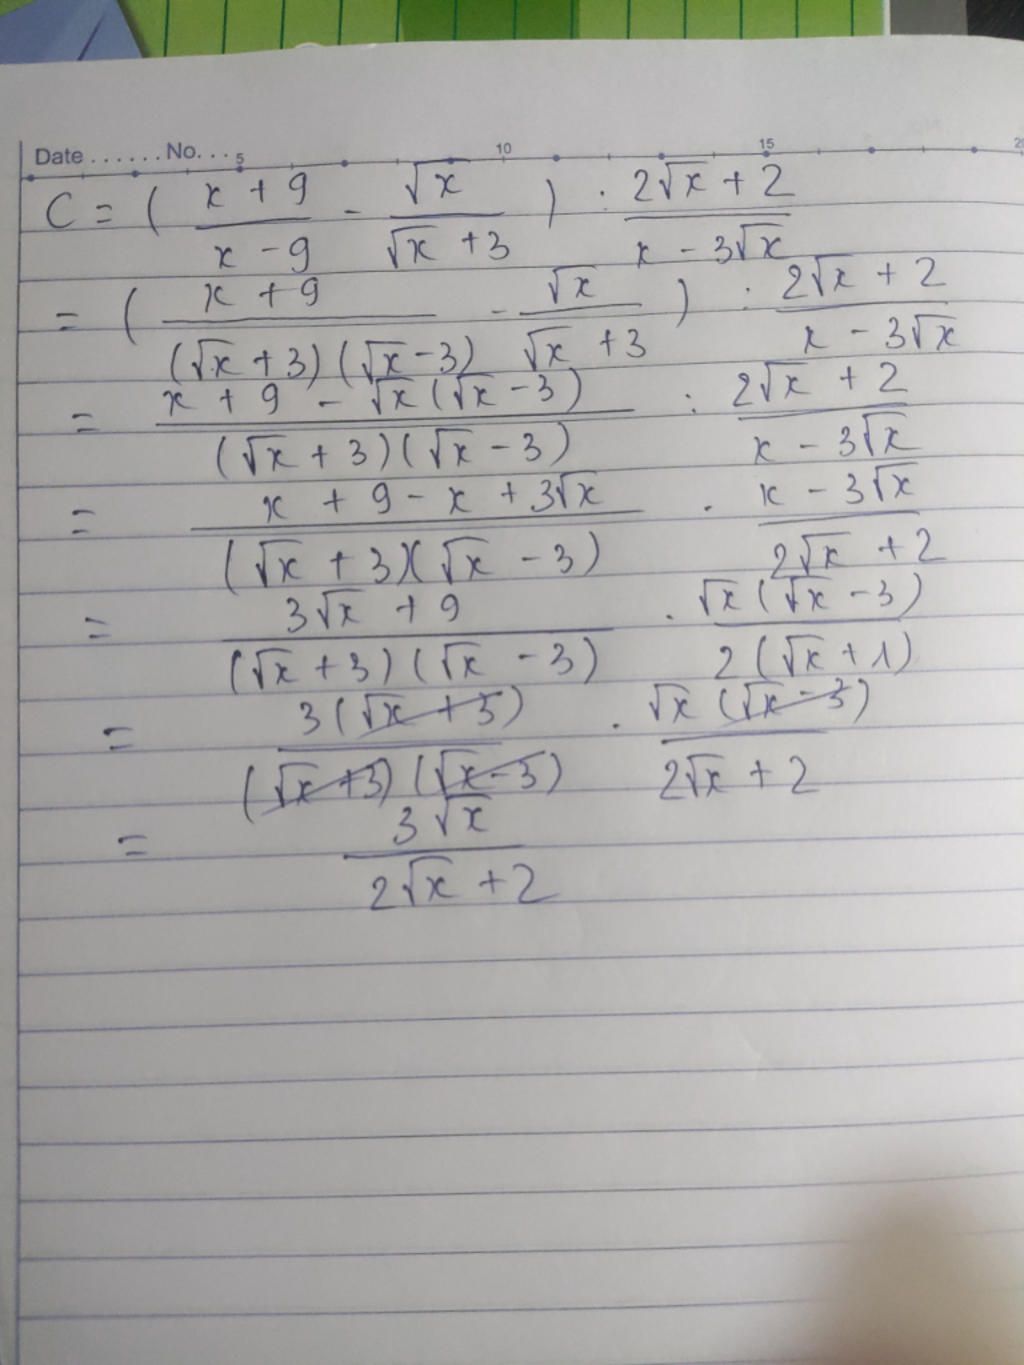 Date ...... No. ... 5 10 15 20
C = ( (x + 9)/(x - 9) - √x/(√x + 3) ) : (2√x + 2)/(x - 3√x)
= ( (x + 9)/((√x + 3)(√x - 3)) - √x/(√x + 3) ) : (2√x + 2)/(x - 3√x)
= (x + 9 - √x(√x - 3))/((√x + 3)(√x - 3)) : (2√x + 2)/(x - 3√x)
= (x + 9 - x + 3√x)/((√x + 3)(√x - 3)) . (x - 3√x)/(2√x + 2)
= (3√x + 9)/((√x + 3)(√x - 3)) . √x(√x - 3)/(2(√x + 1))
= 3(√x + 3)/((√x + 3)(√x - 3)) . √x(√x - 3)/(2√x + 2)
= 3√x/(2√x + 2)